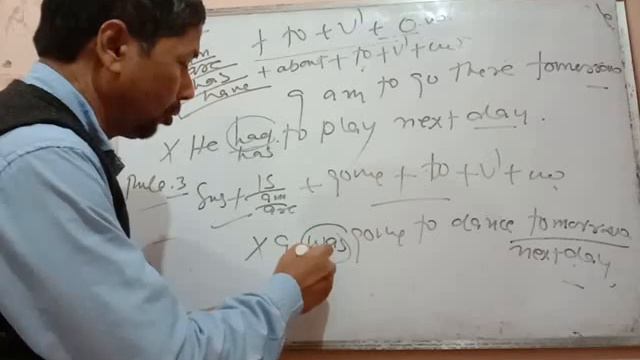 am + to + V¹ + O.w.
are
has + about + to + V¹ + ow
have
I am to go there tomorrow
X He had to play next day.
has
Rule.3 Sub + is + going + to + V¹ + ow
am
are
X I was going to dance tomorrow
next day